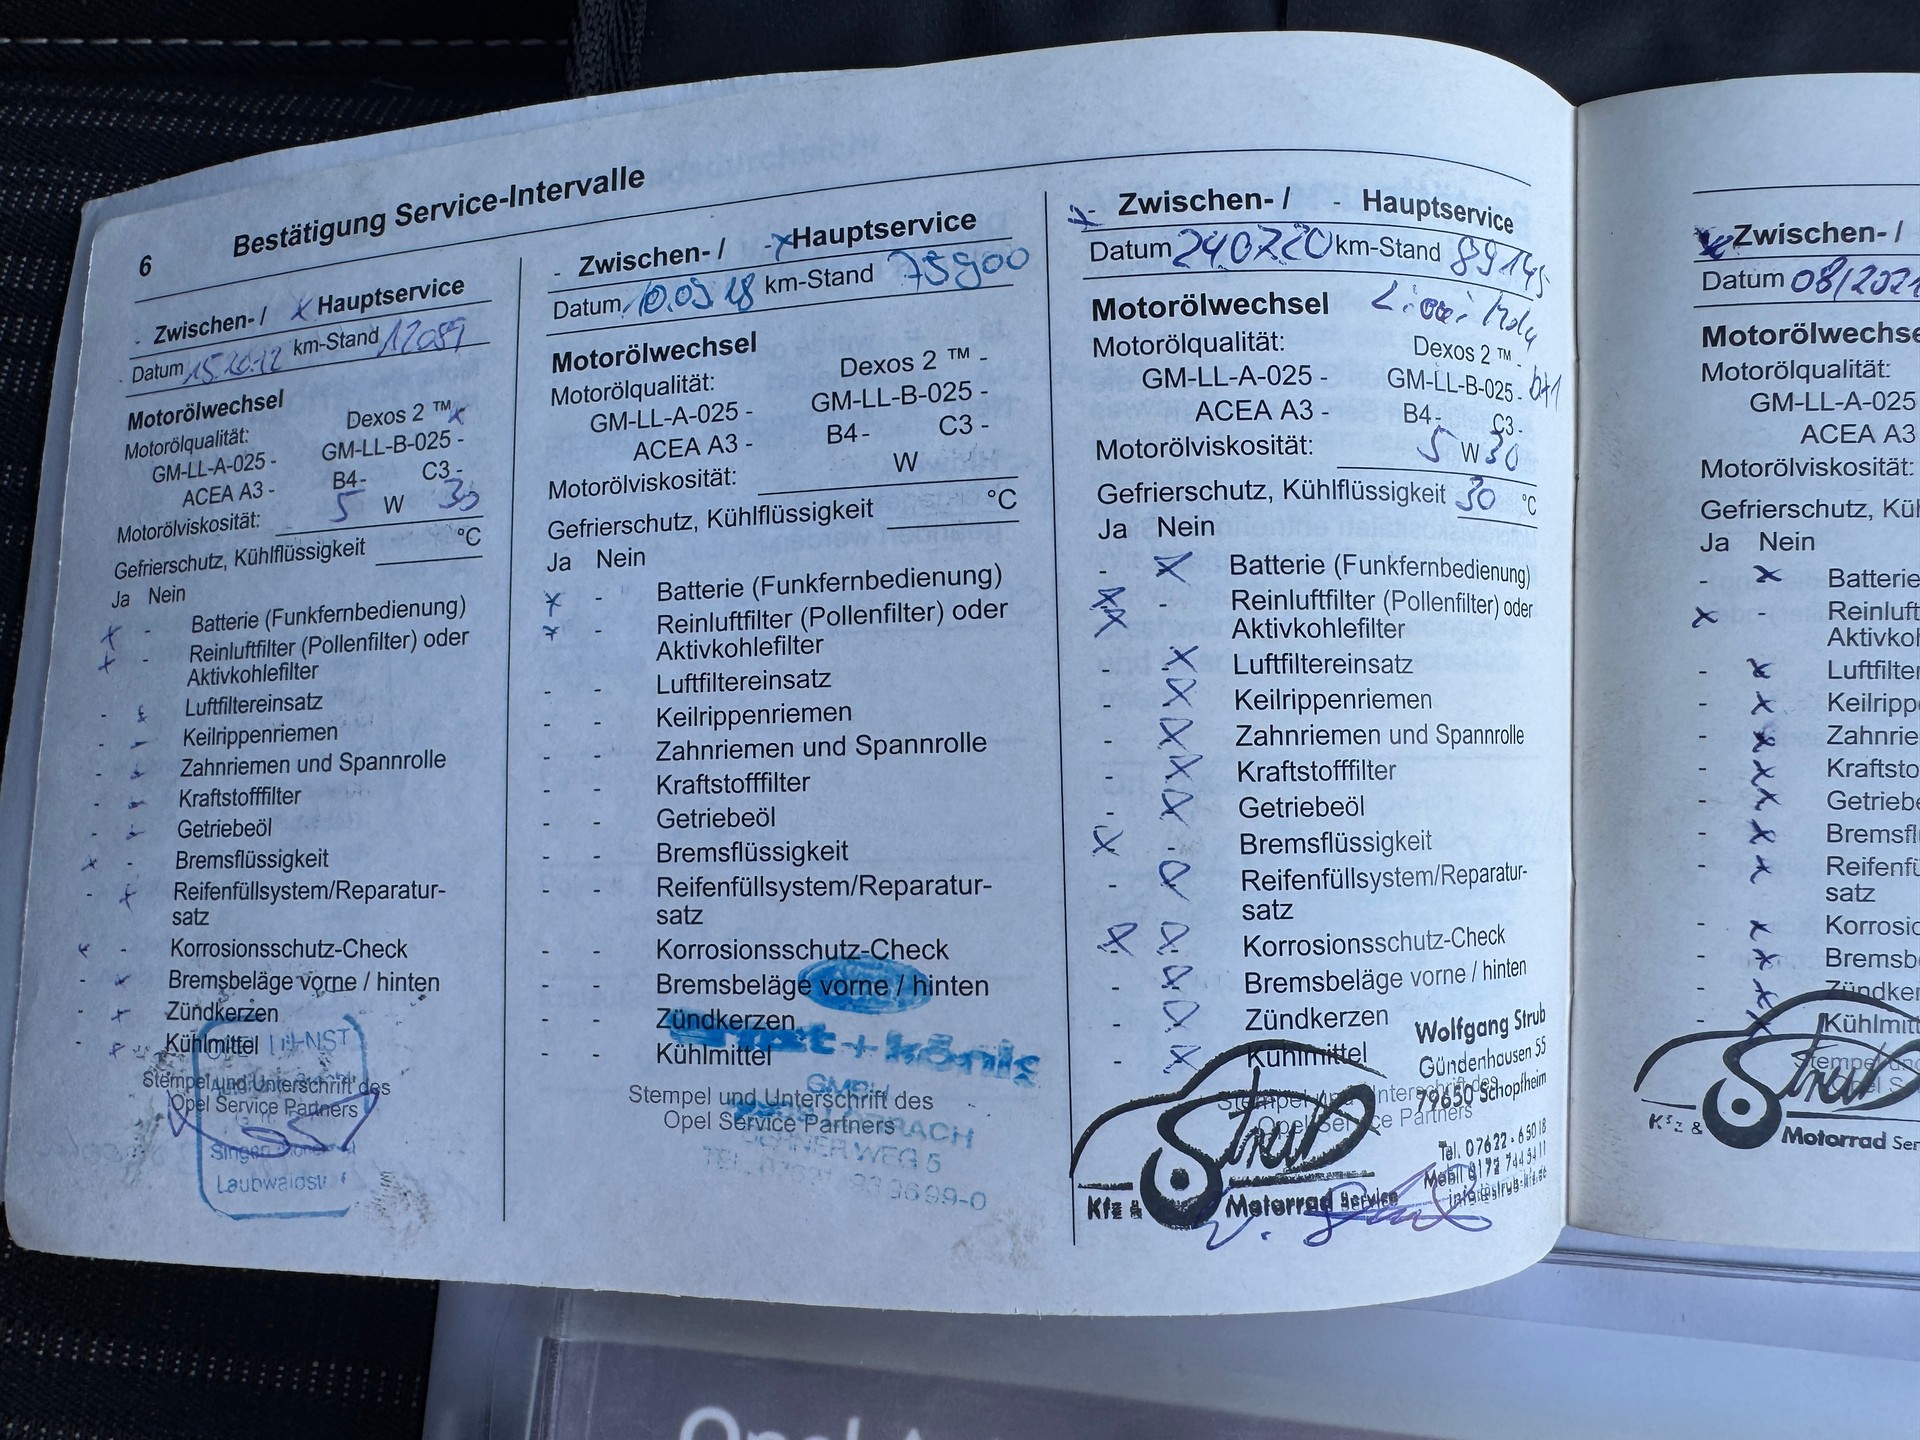 6
Bestätigung Service-Intervalle
- Zwischen- / x Hauptservice
Datum 15.10.12 km-Stand 12089
Motorölwechsel
Motorölqualität: Dexos 2 ™ x
GM-LL-A-025 - GM-LL-B-025 -
ACEA A3 - B4 - C3 -
Motorölviskosität: 5 W 30
Gefrierschutz, Kühlflüssigkeit °C
Ja Nein
x - Batterie (Funkfernbedienung)
x - Reinluftfilter (Pollenfilter) oder
Aktivkohlefilter
Luftfiltereinsatz
Keilrippenriemen
Zahnriemen und Spannrolle
Kraftstofffilter
Getriebeöl
x - Bremsflüssigkeit
- x Reifenfüllsystem/Reparatur-
satz
x - Korrosionsschutz-Check
- x Bremsbeläge vorne / hinten
- x Zündkerzen
- x Kühlmittel
Stempel und Unterschrift des
Opel Service Partners
Singen
Laubwaldstr
- Zwischen- / - x Hauptservice
Datum 10.09.18 km-Stand 75900
Motorölwechsel
Motorölqualität: Dexos 2 ™ -
GM-LL-A-025 - GM-LL-B-025 -
ACEA A3 - B4 - C3 -
Motorölviskosität: W
Gefrierschutz, Kühlflüssigkeit °C
Ja Nein
x - Batterie (Funkfernbedienung)
x - Reinluftfilter (Pollenfilter) oder
Aktivkohlefilter
- - Luftfiltereinsatz
- - Keilrippenriemen
- - Zahnriemen und Spannrolle
- - Kraftstofffilter
- - Getriebeöl
- - Bremsflüssigkeit
- - Reifenfüllsystem/Reparatur-
satz
- - Korrosionsschutz-Check
- - Bremsbeläge vorne / hinten
- - Zündkerzen
- - Kühlmittel
+ könig
GMBH
Stempel und Unterschrift des
Opel Service Partners
WEG 5
x - Zwischen- / - Hauptservice
Datum 240720 km-Stand 89145
Motorölwechsel Liqui Moly
Motorölqualität: Dexos 2 ™ -
GM-LL-A-025 - GM-LL-B-025 -
ACEA A3 - B4 - C3 -
Motorölviskosität: 5 W 30
Gefrierschutz, Kühlflüssigkeit 30 °C
Ja Nein
- x Batterie (Funkfernbedienung)
x - Reinluftfilter (Pollenfilter) oder
x Aktivkohlefilter
- x Luftfiltereinsatz
- x Keilrippenriemen
- x Zahnriemen und Spannrolle
- x Kraftstofffilter
- x Getriebeöl
x - Bremsflüssigkeit
- x Reifenfüllsystem/Reparatur-
satz
x x Korrosionsschutz-Check
- x Bremsbeläge vorne / hinten
- x Zündkerzen
- x Kühlmittel
Stempel und Unterschrift des
Opel Service Partners
Wolfgang Strub
Gündenhausen 55
79650 Schopfheim
Tel. 07622 - 65018
Mobil 0172
Strub
Kfz & Motorrad Service
x Zwischen- /
Datum 08/2021
Motorölwechse
Motorölqualität:
GM-LL-A-025
ACEA A3
Motorölviskosität:
Gefrierschutz, Küh
Ja Nein
- x Batterie
x - Reinluft
Aktivkoh
- x Luftfilter
- x Keilripp
- x Zahnrie
- x Kraftsto
- x Getriebe
- x Bremsfl
- x Reifenfü
satz
- x Korrosio
- x Bremsb
- x Zündker
Kühlmitt
Strub
Kfz & Motorrad Ser
Opel A